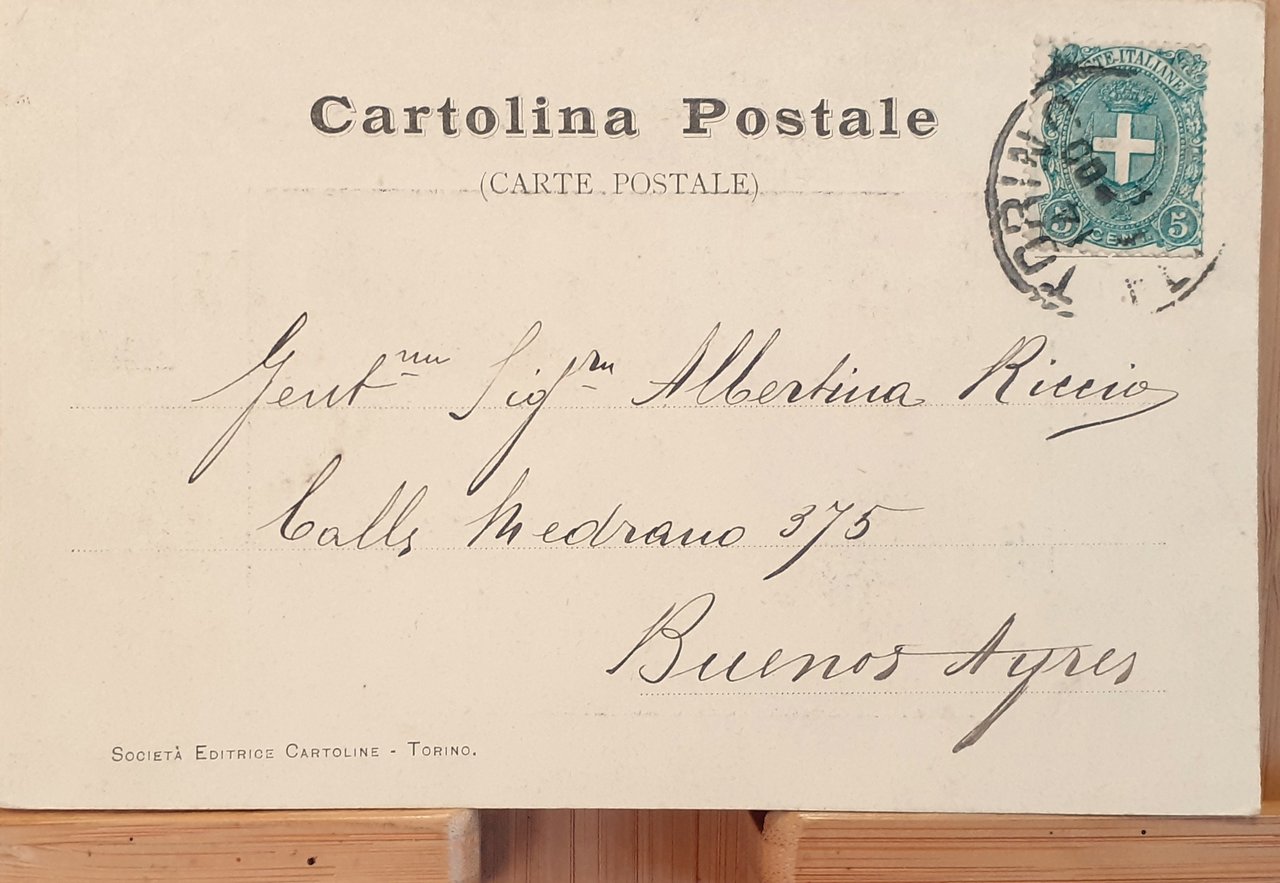 Cartolina Postale
(CARTE POSTALE)
POSTE ITALIANE
5 CENT. 5
TORINO
Gent.ma Sig.ra Albertina Riccio
Calle Medrano 375
Buenos Ayres
SOCIETÀ EDITRICE CARTOLINE - TORINO.